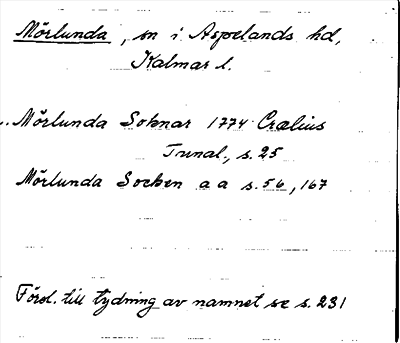 Mörlunda, sn i Aspelands hd,
Kalmar l.
Mörlunda Soknar 1774 Crælius
Tunal., s. 25
Mörlunda Socken a a s. 56, 167
Försl. till tydning av namnet se s. 231